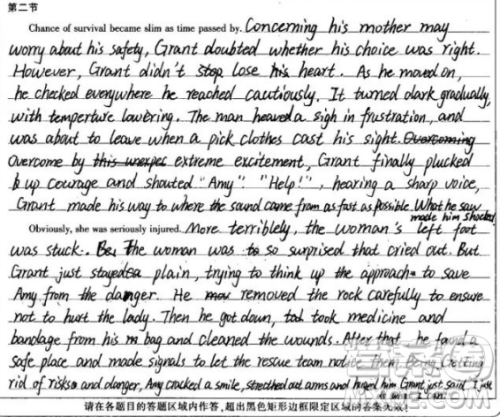 第二节
Chance of survival became slim as time passed by. Concerning his mother may
worry about his safety, Grant doubted whether his choice was right.
However, Grant didn't stop lose his heart. As he moved on,
he checked everywhere he reached cautiously. It turned dark gradually,
with temperture lowering. The man heaved a sigh in frustration, and
was about to leave when a pick clothes cast his sight. Overcoming
Overcome by this unexpec extreme excitement, Grant finally plucked
up courage and shouted "Amy" "Help!", hearing a sharp voice,
Grant made his way to where the sound came from as fast as possible. What he saw
made him shocked
Obviously, she was seriously injured. More terriblely, the woman's left foot
was stuck. The woman was so surprised that cried out. But
Grant just stayed plain, trying to think up the approach to save
Amy from the danger. He removed the rock carefully to ensure
not to hurt the lady. Then he got down, took medicine and
bandage from his bag and cleaned the wounds. After that, he found a
safe place and made signals to let the rescue team Then
rid of risks and danger, Amy cracked a smile, stretched out arms and huged him Grant just said "I just
请在各题目的答题区域内作答,超出黑色矩形边框限定区域的答案无效